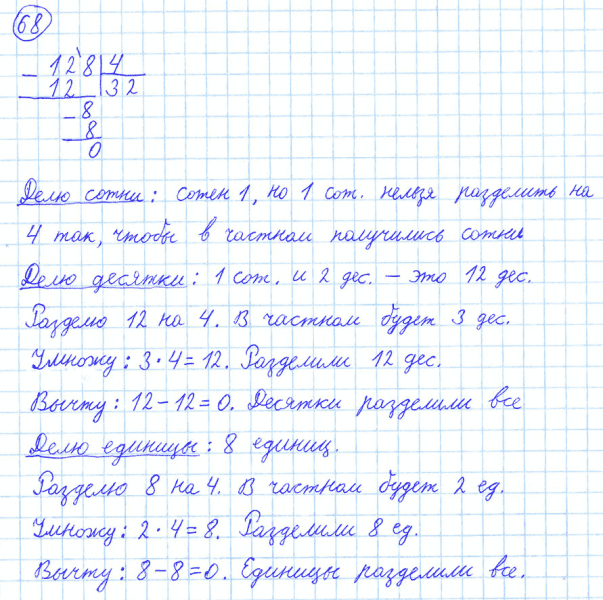 68
- 128 4
12 32
- 8
8
0
Делю сотни: сотен 1, но 1 сот. нельзя разделить на
4 так, чтобы в частном получились сотни
Делю десятки: 1 сот. и 2 дес. – это 12 дес.
Разделю 12 на 4. В частном будет 3 дес.
Умножу: 3 · 4 = 12. Разделили 12 дес.
Вычту: 12 – 12 = 0. Десятки разделили все
Делю единицы: 8 единиц.
Разделю 8 на 4. В частном будет 2 ед.
Умножу: 2 · 4 = 8. Разделили 8 ед.
Вычту: 8 – 8 = 0. Единицы разделили все.